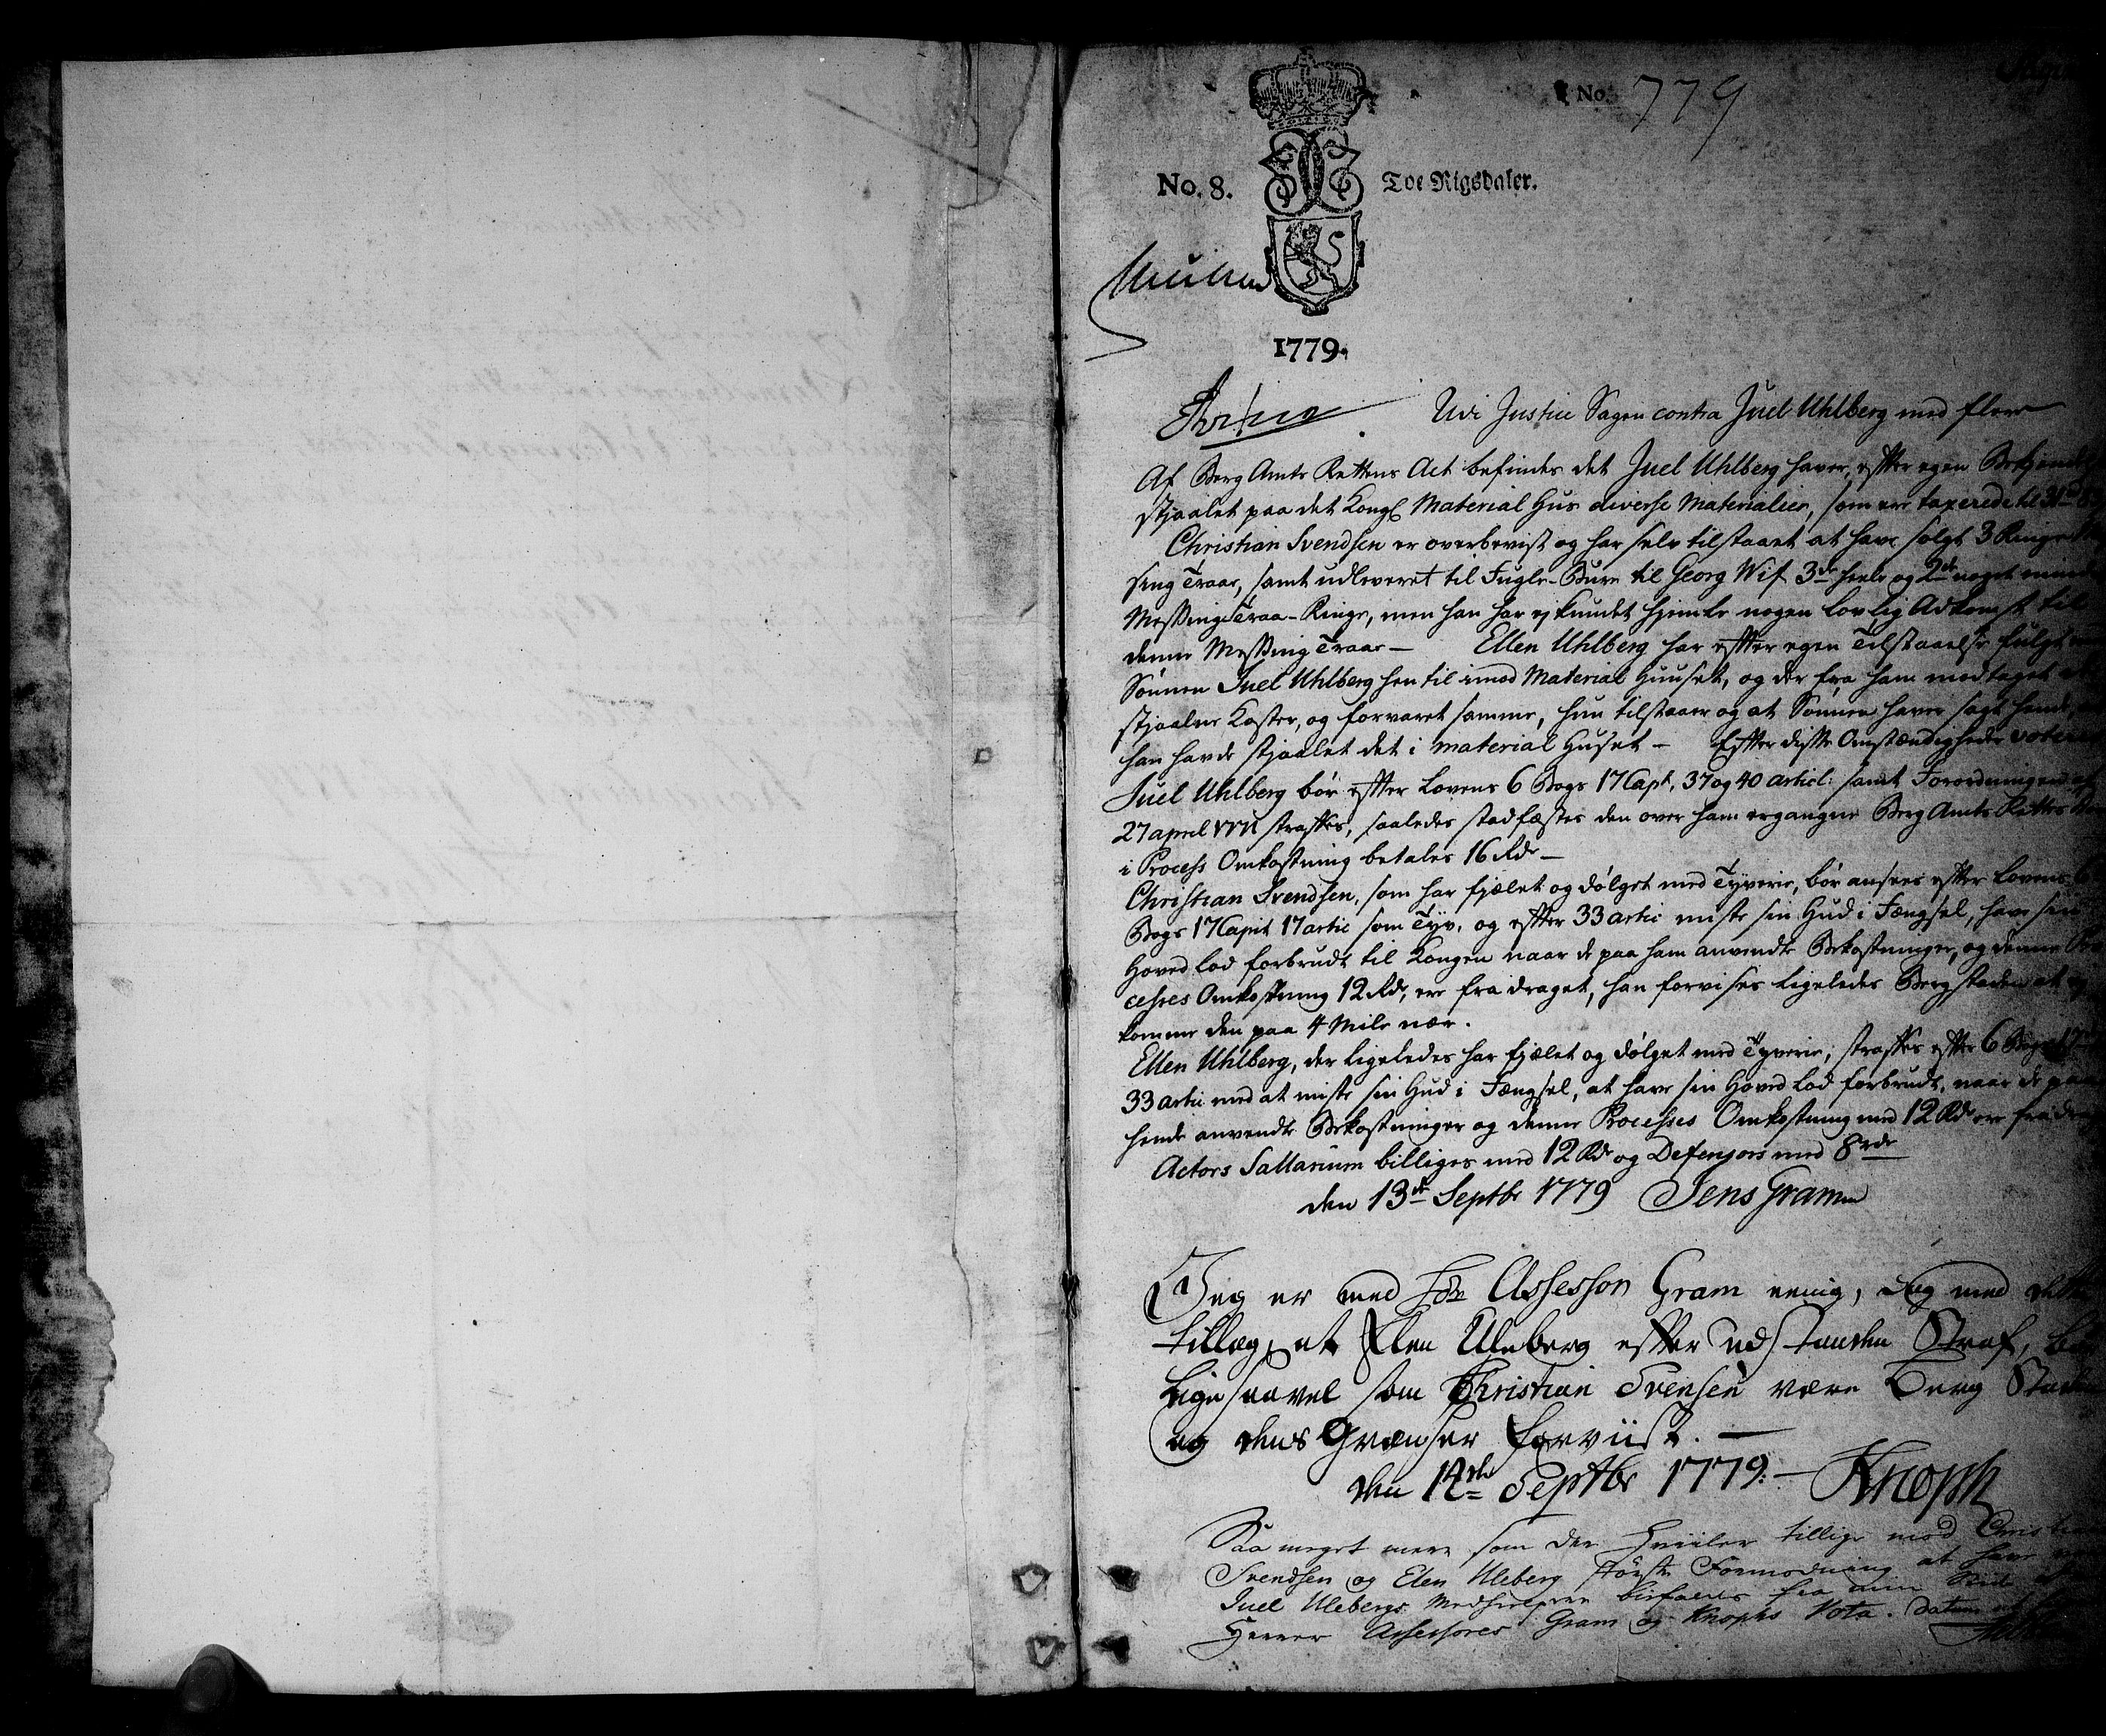 No. 779
No. 8. Toe Rigsdaler.
1779.
Udi Justice Sagen contra Juel Uhlberg med flere
Af Berg Amts Rettens Act befindes det Juel Uhlberg haver, efter egen
stjaalet paa det Kongl Material Huus diverse Materialier, som ere taxerede til 31
Christian Svendsen er overbevist og har selv tilstaaet at have solgt 3 Ringe
sing Traae, samt udleveret til Fugle-Buur til Georg Wif 3de heele og 2de noget
Messing Traa-Ringe, men han har ej kundet hjemle nogen lovlig Adkomst til
denne Messing Traae — Ellen Uhlberg har efter egen Tilstaaelse fulgt
Sönnen Juel Uhlberg hen til imod Material Huuset, og der fra ham modtaget
stjaalne Koster, og forvaret samme, hun tilstaaer og at Sönnen haver sagt hende,
han havde stjaalet det i Material Huset — Efter disse Omstændigheder
Juel Uhlberg bör efter Lovens 6 Bogs 17 Capt. 37 og 40 articl: samt Forordningen af
27 april straffes, saaledes stadfæstes den over ham ergangne Berg Amts Rettes
i Process Omkostning betales 16 Rdr —
Christian Svendsen, som har hjælet og dölget med Tyverie, bör ansees efter Lovens 6
Bogs 17 Capit 17 artic som Tyv, og efter 33 artic miste sin Hud i Fængsel, have sin
Hoved lod forbrudt til Kongen naar de paa ham anvendte Bekostninger, og denne
cesses Omkostning 12 Rdr, ere fra draget, han forvises ligeledes Bergstaden at ej
komme den paa 4 Mile nær.
Ellen Uhlberg, der ligeledes har hjælet og dölget med Tyverie, straffes efter 6 Bogs 17
33 artic med at miste sin Hud i Fængsel, at have sin Hoved lod forbrudt, naar de paa
hende anvendte Bekostninger og denne Processes Omkostning med 12 Rdr ere fra
Actors Sallarium billiges med 12 Rdr og Defensors med 8 rdr
den 13de Septbr 1779 Jens Gram
Jeg er med Hr Assessor Gram eenig, dog med dette
tillæg, at Elen Uleberg efter udstanden Straf, bör
lige saavel som Christian Svensen være Berg Staden
og dens Grænser forviist. —
den 14de Septbr 1779. — Knoph
Saa meget mere som der hviiler tillige mod
Svendsen og Elen Uleberg störste Formodning at have
Juel Ulebergs bifaldes fra min Side
Herrer Assessores Gram og Knophs Vota. Datum